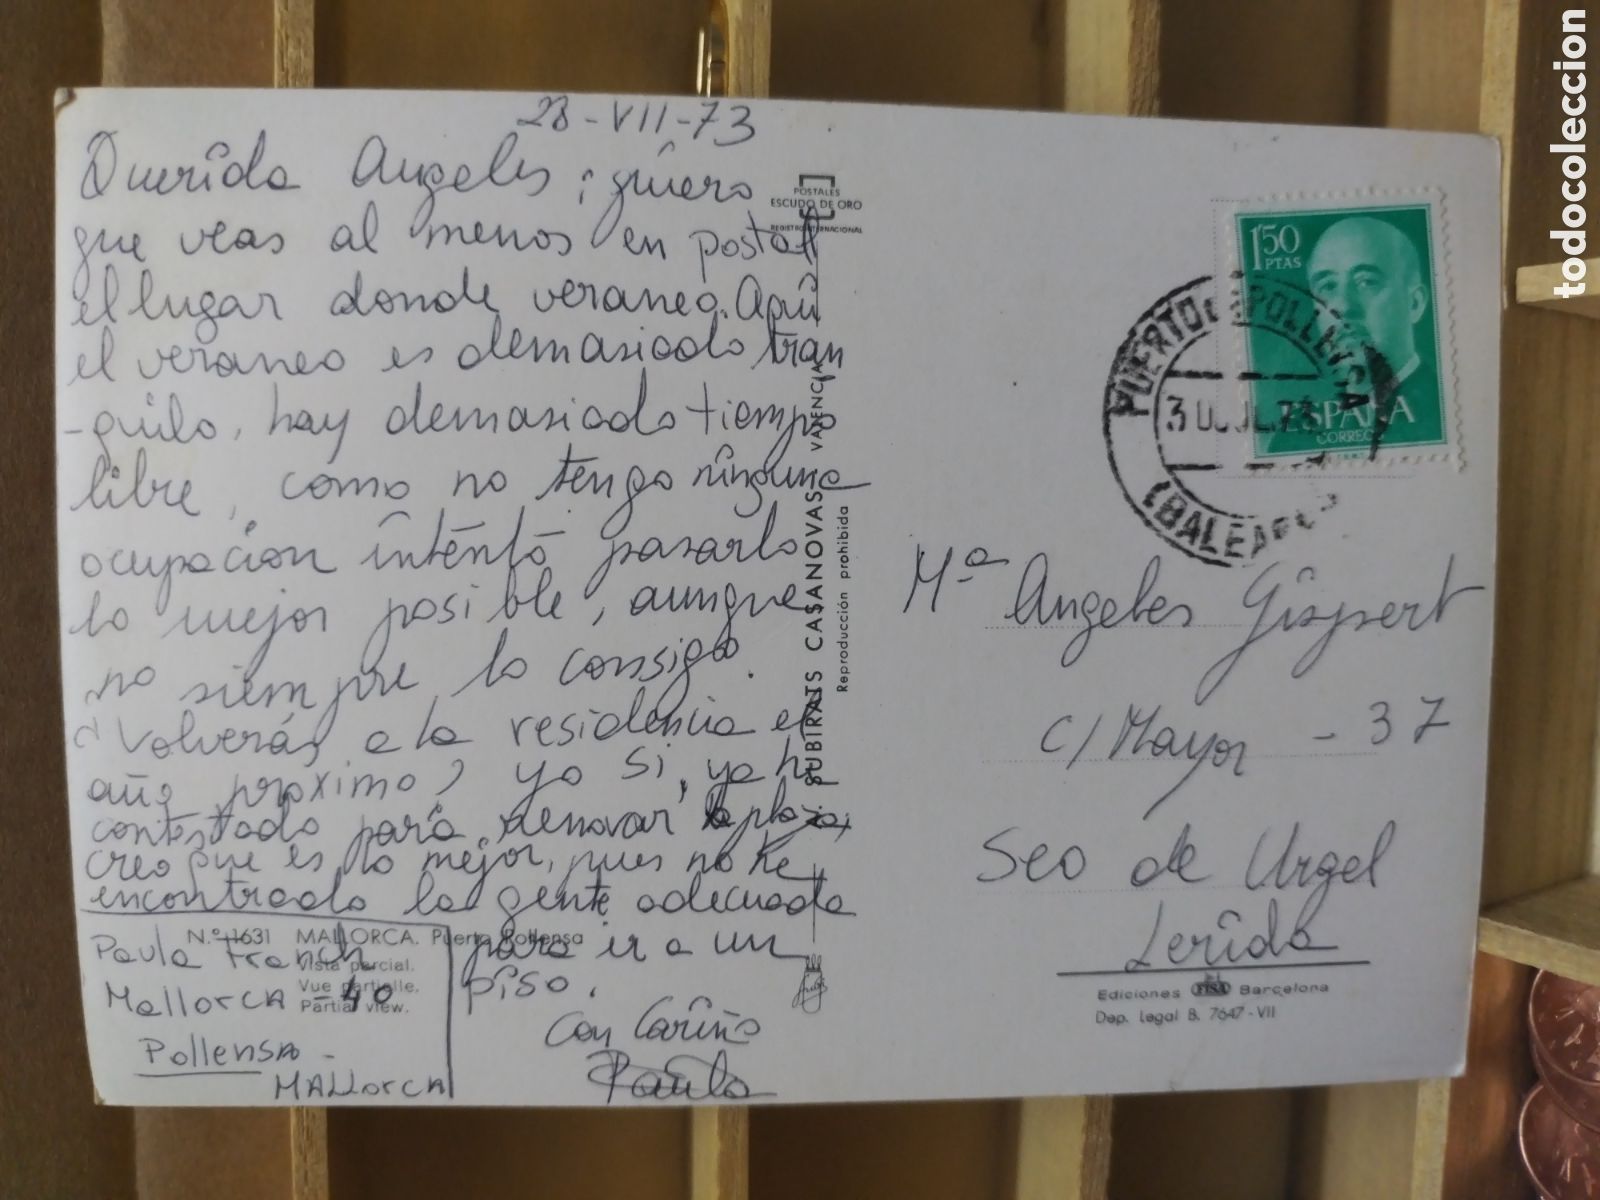 28-VII-73
Querida Angeles; quiero
que veas al menos en postal
el lugar donde veraneo. Aquí
el veraneo es demasiado tran
-quilo, hay demasiado tiempo
libre, como no tengo ninguna
ocupación intentó pasarlo
lo mejor posible, aunque
no siempre lo consigo.
¿Volverás a la residencia el
año proximo, yo si, ya he
contestado para renovar la plaza,
creo que es lo mejor, pues no he
encontrado la gente adecuada
para ir a un
piso.
Con Cariño
Paula
Paula Franch
Mallorca - 40
Pollensa -
MALLORCA
N.º 1631 MALLORCA. Puerto Pollensa
Vista parcial.
Vue partielle.
Partial view.
POSTALES
ESCUDO DE ORO
REGISTRO INTERNACIONAL
SUBIRATS CASANOVAS - VALENCIA
Reproducción prohibida
1'50
PTAS
ESPAÑA
CORREOS
PUERTO DE POLLENSA
30 JUL. 73
(BALEARES)
Mª Angeles Gispert
c/ Mayor - 37
Seo de Urgel
Lerida
Ediciones FISA Barcelona
Dep. Legal B. 7647-VII
todocoleccion